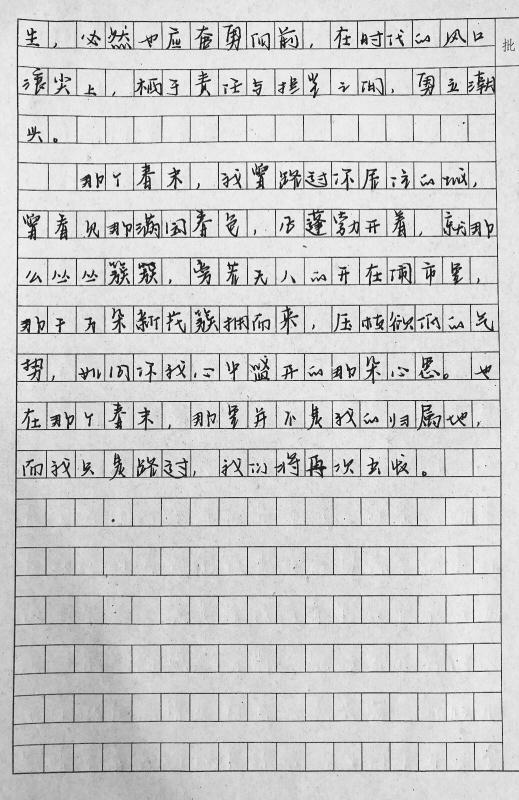 生，必然也应奋勇向前，在时代的风口
批
浪尖上，栖于责任与担当之间，勇立潮
头。
那个春末，我曾路过你居住的城，
曾看见那满园春色，蓬勃开着，就那
么丛丛簇簇，旁若无人的开在闹市里，
那千万朵新花簇拥而来，压枝欲低的气
势，如同你我心中盛开的那朵心思。也
在那个春末，那里并不是我的归属地，
而我只是路过，我们将再次出收。